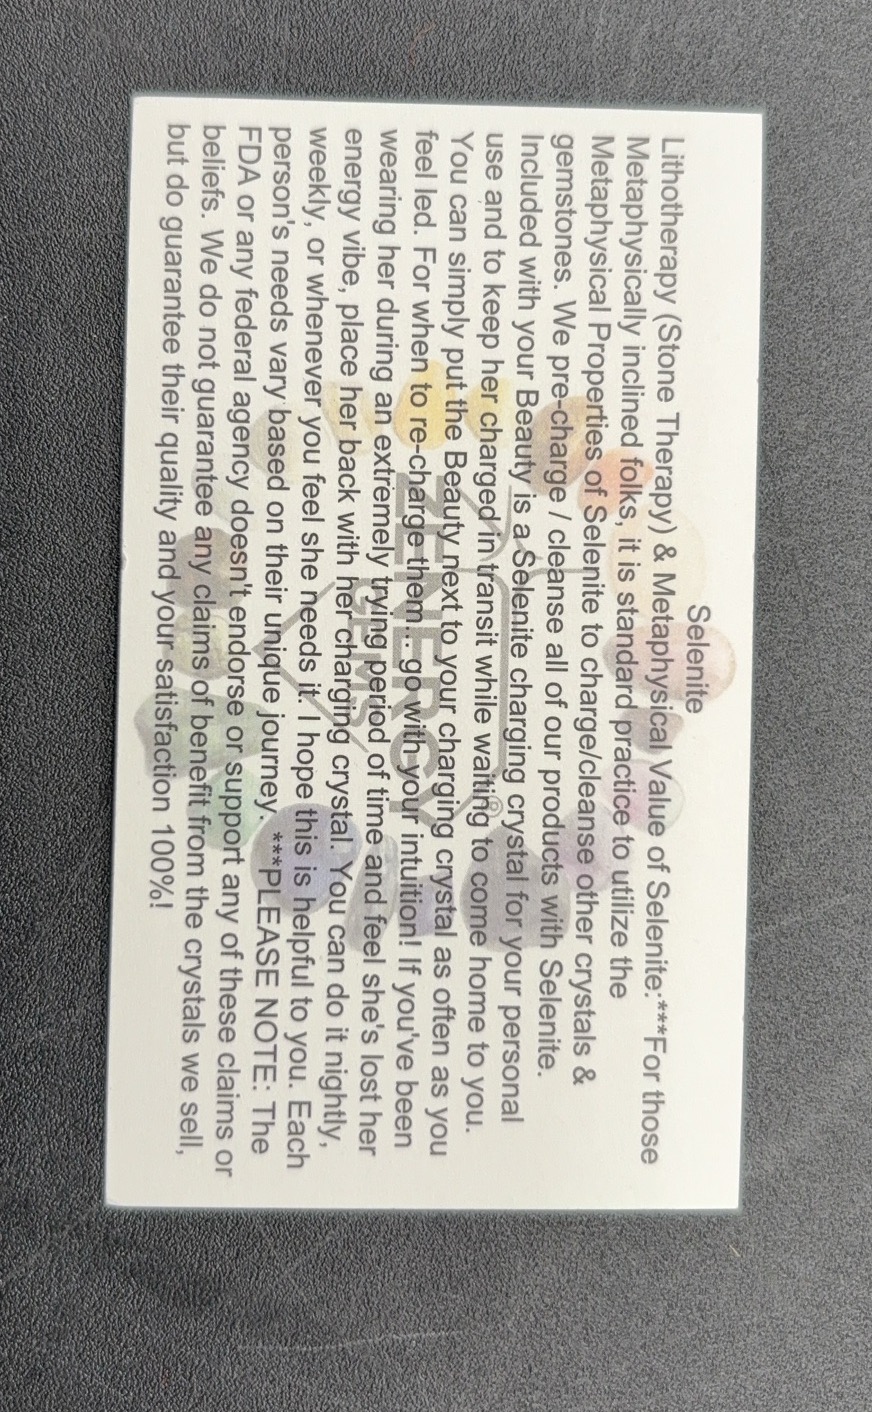 Selenite
Lithotherapy (Stone Therapy) & Metaphysical Value of Selenite:***For those
Metaphysically inclined folks, it is standard practice to utilize the
Metaphysical Properties of Selenite to charge/cleanse other crystals &
gemstones. We pre-charge / cleanse all of our products with Selenite.
Included with your Beauty is a Selenite charging crystal for your personal
use and to keep her charged in transit while waiting to come home to you.
You can simply put the Beauty next to your charging crystal as often as you
feel led. For when to re-charge them... go with your intuition! If you've been
wearing her during an extremely trying period of time and feel she's lost her
energy vibe, place her back with her charging crystal. You can do it nightly,
weekly, or whenever you feel she needs it. I hope this is helpful to you. Each
person's needs vary based on their unique journey. ***PLEASE NOTE: The
FDA or any federal agency doesn't endorse or support any of these claims or
beliefs. We do not guarantee any claims of benefit from the crystals we sell,
but do guarantee their quality and your satisfaction 100%!
ZENERGY
GEMS
®